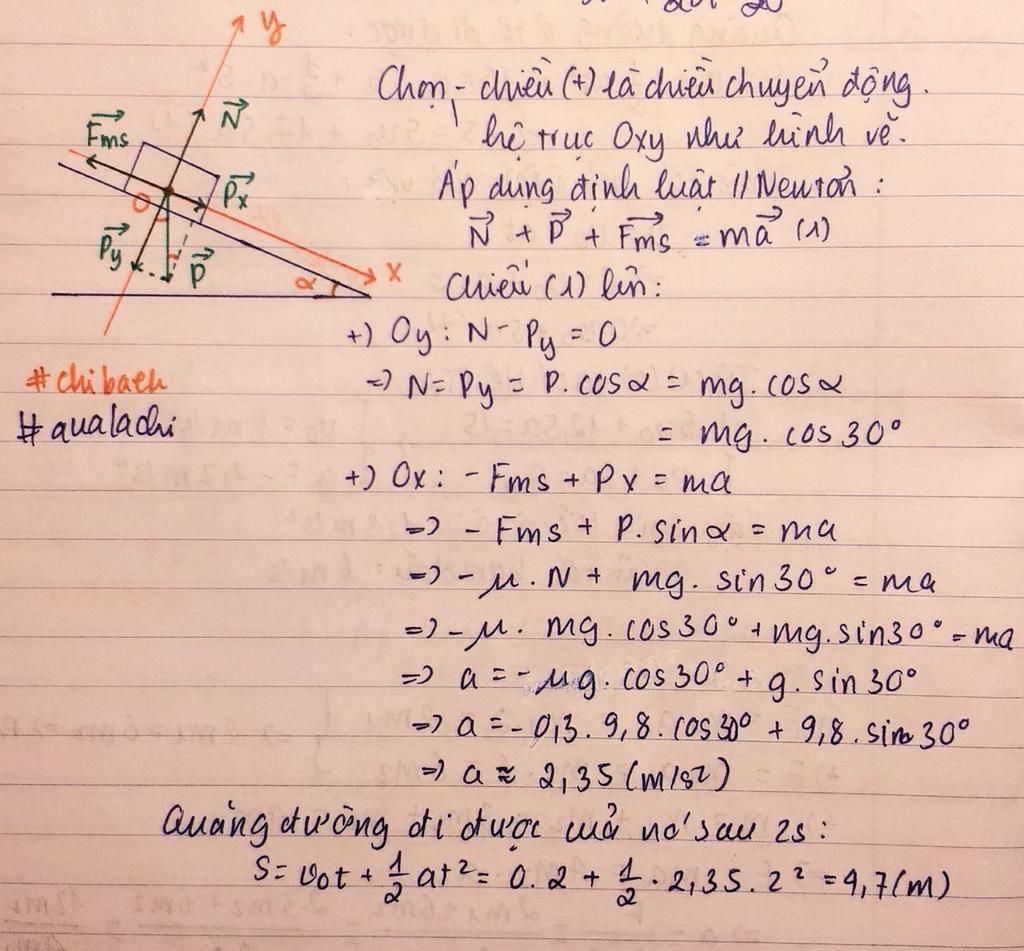 y
N
Fms
Px
O
Py
P
α
x
Chọn - chiều (+) là chiều chuyển động.
hệ trục Oxy như hình vẽ.
Áp dụng định luật II Newton :
N + P + Fms = ma (1)
Chiếu (1) lên:
+) Oy : N - Py = 0
=> N = Py = P. cosα = mg. cosα
= mg. cos 30°
#chibach
#aualachi
+) Ox : - Fms + Px = ma
=> - Fms + P. sinα = ma
=> - μ. N + mg. sin 30° = ma
=> - μ. mg. cos 30° + mg. sin 30° = ma
=> a = - μg. cos 30° + g. sin 30°
=> a = - 0,3. 9,8. cos 30° + 9,8. sin 30°
=> a ≈ 2,35 (m/s²)
Quãng đường đi được của nó sau 2s :
S = v₀t + 1/2 at² = 0. 2 + 1/2 . 2,35. 2² = 4,7 (m)